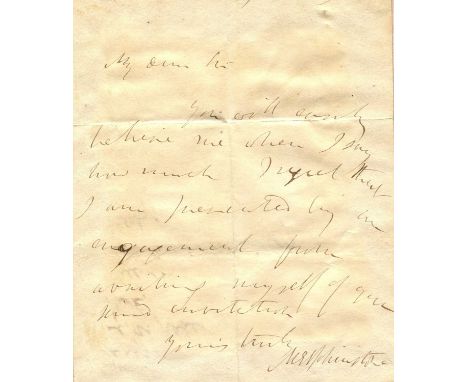 My dear Sir
you will easily
believe me when I say
how much I regret that
I am prevented by an
engagement from
availing myself of your
kind invitation
yours truly